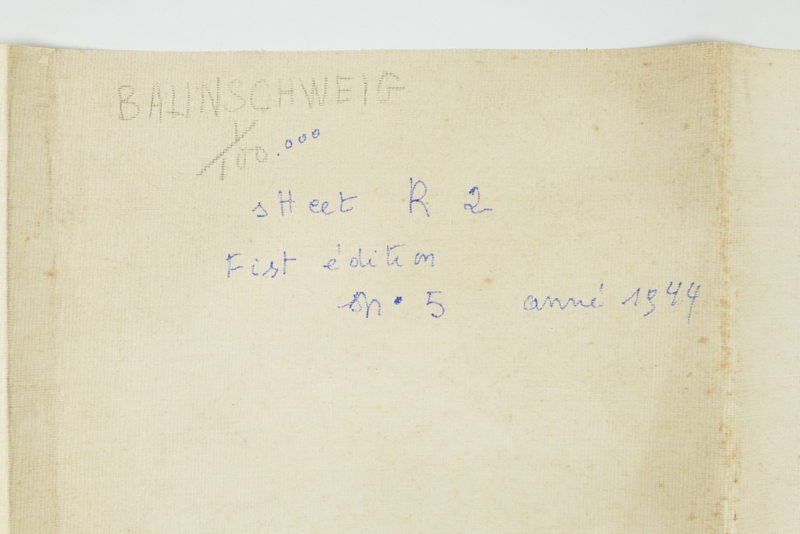 BAUNSCHWEIG
1/100.000
sHeet R 2
Fist édition
n° 5 anné 1944